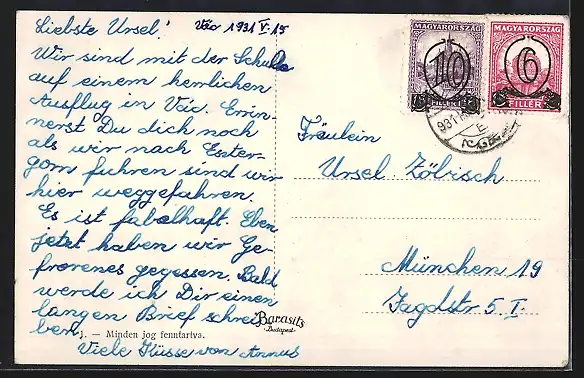 Liebste Ursel! Vác 1931 V. 15
Wir sind mit der Schule
auf einem herrlichen
Ausflug in Vác. Erin-
nerst Du dich noch
als wir nach Eszter-
gom fuhren sind wir
hier weggefahren.
Es ist fabelhaft. Eben
jetzt haben wir Ge-
frorenes gegessen. Bald
werde ich Dir einen
langen Brief schrei-
ben.
Viele Küsse von Annus
— Minden jog fenntartva.
Barasits
Budapest
MAGYARORSZÁG
10
FILLÉR
MAGYARORSZÁG
6
FILLÉR
931
Fräulein
Ursel Zölbisch
München 19
Jagdstr. 5 I.